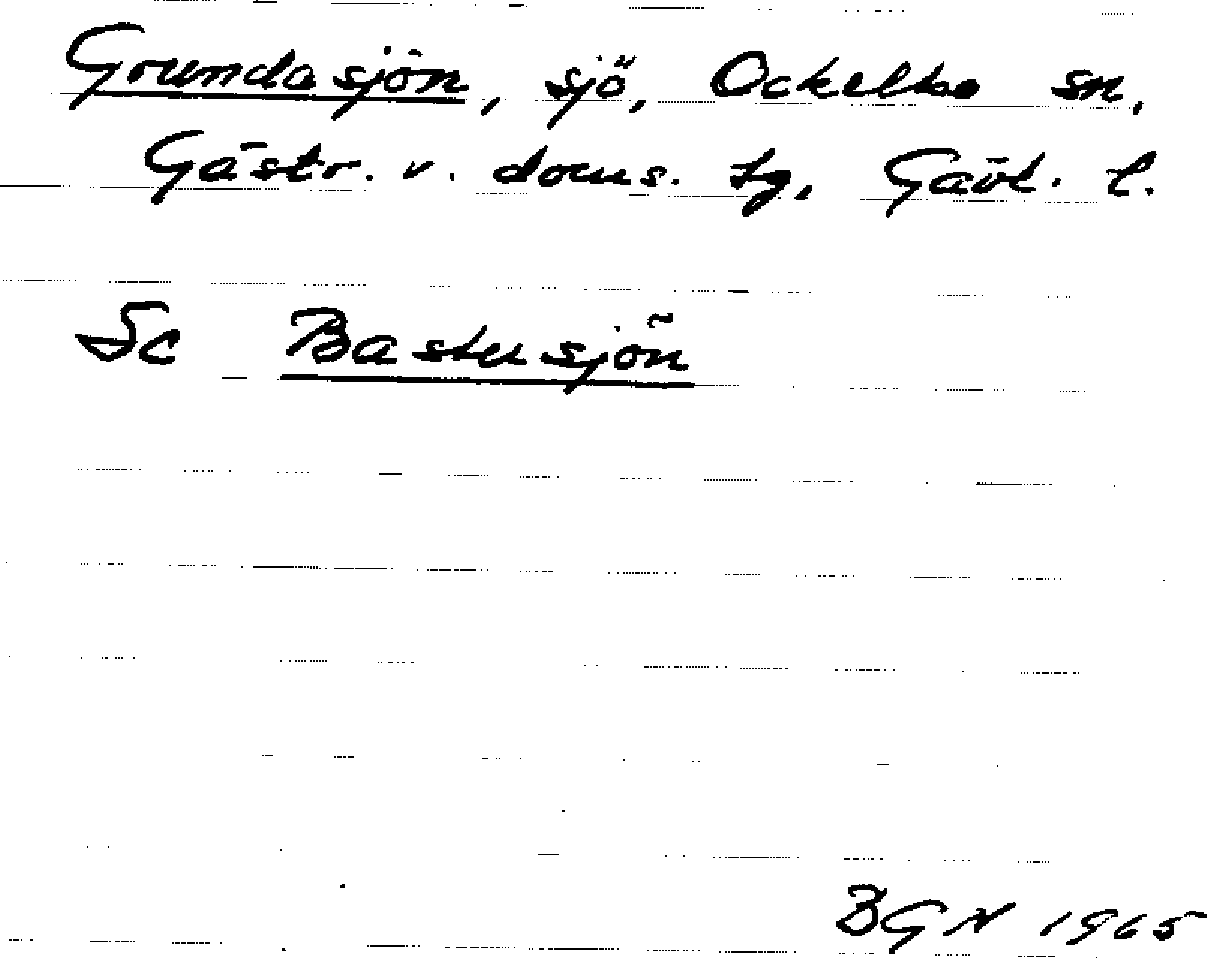 Grundasjön, sjö, Ockelbo sn,
Gästr. v. doms. tg, Gävl. l.
Se Bastusjön
BGN 1965